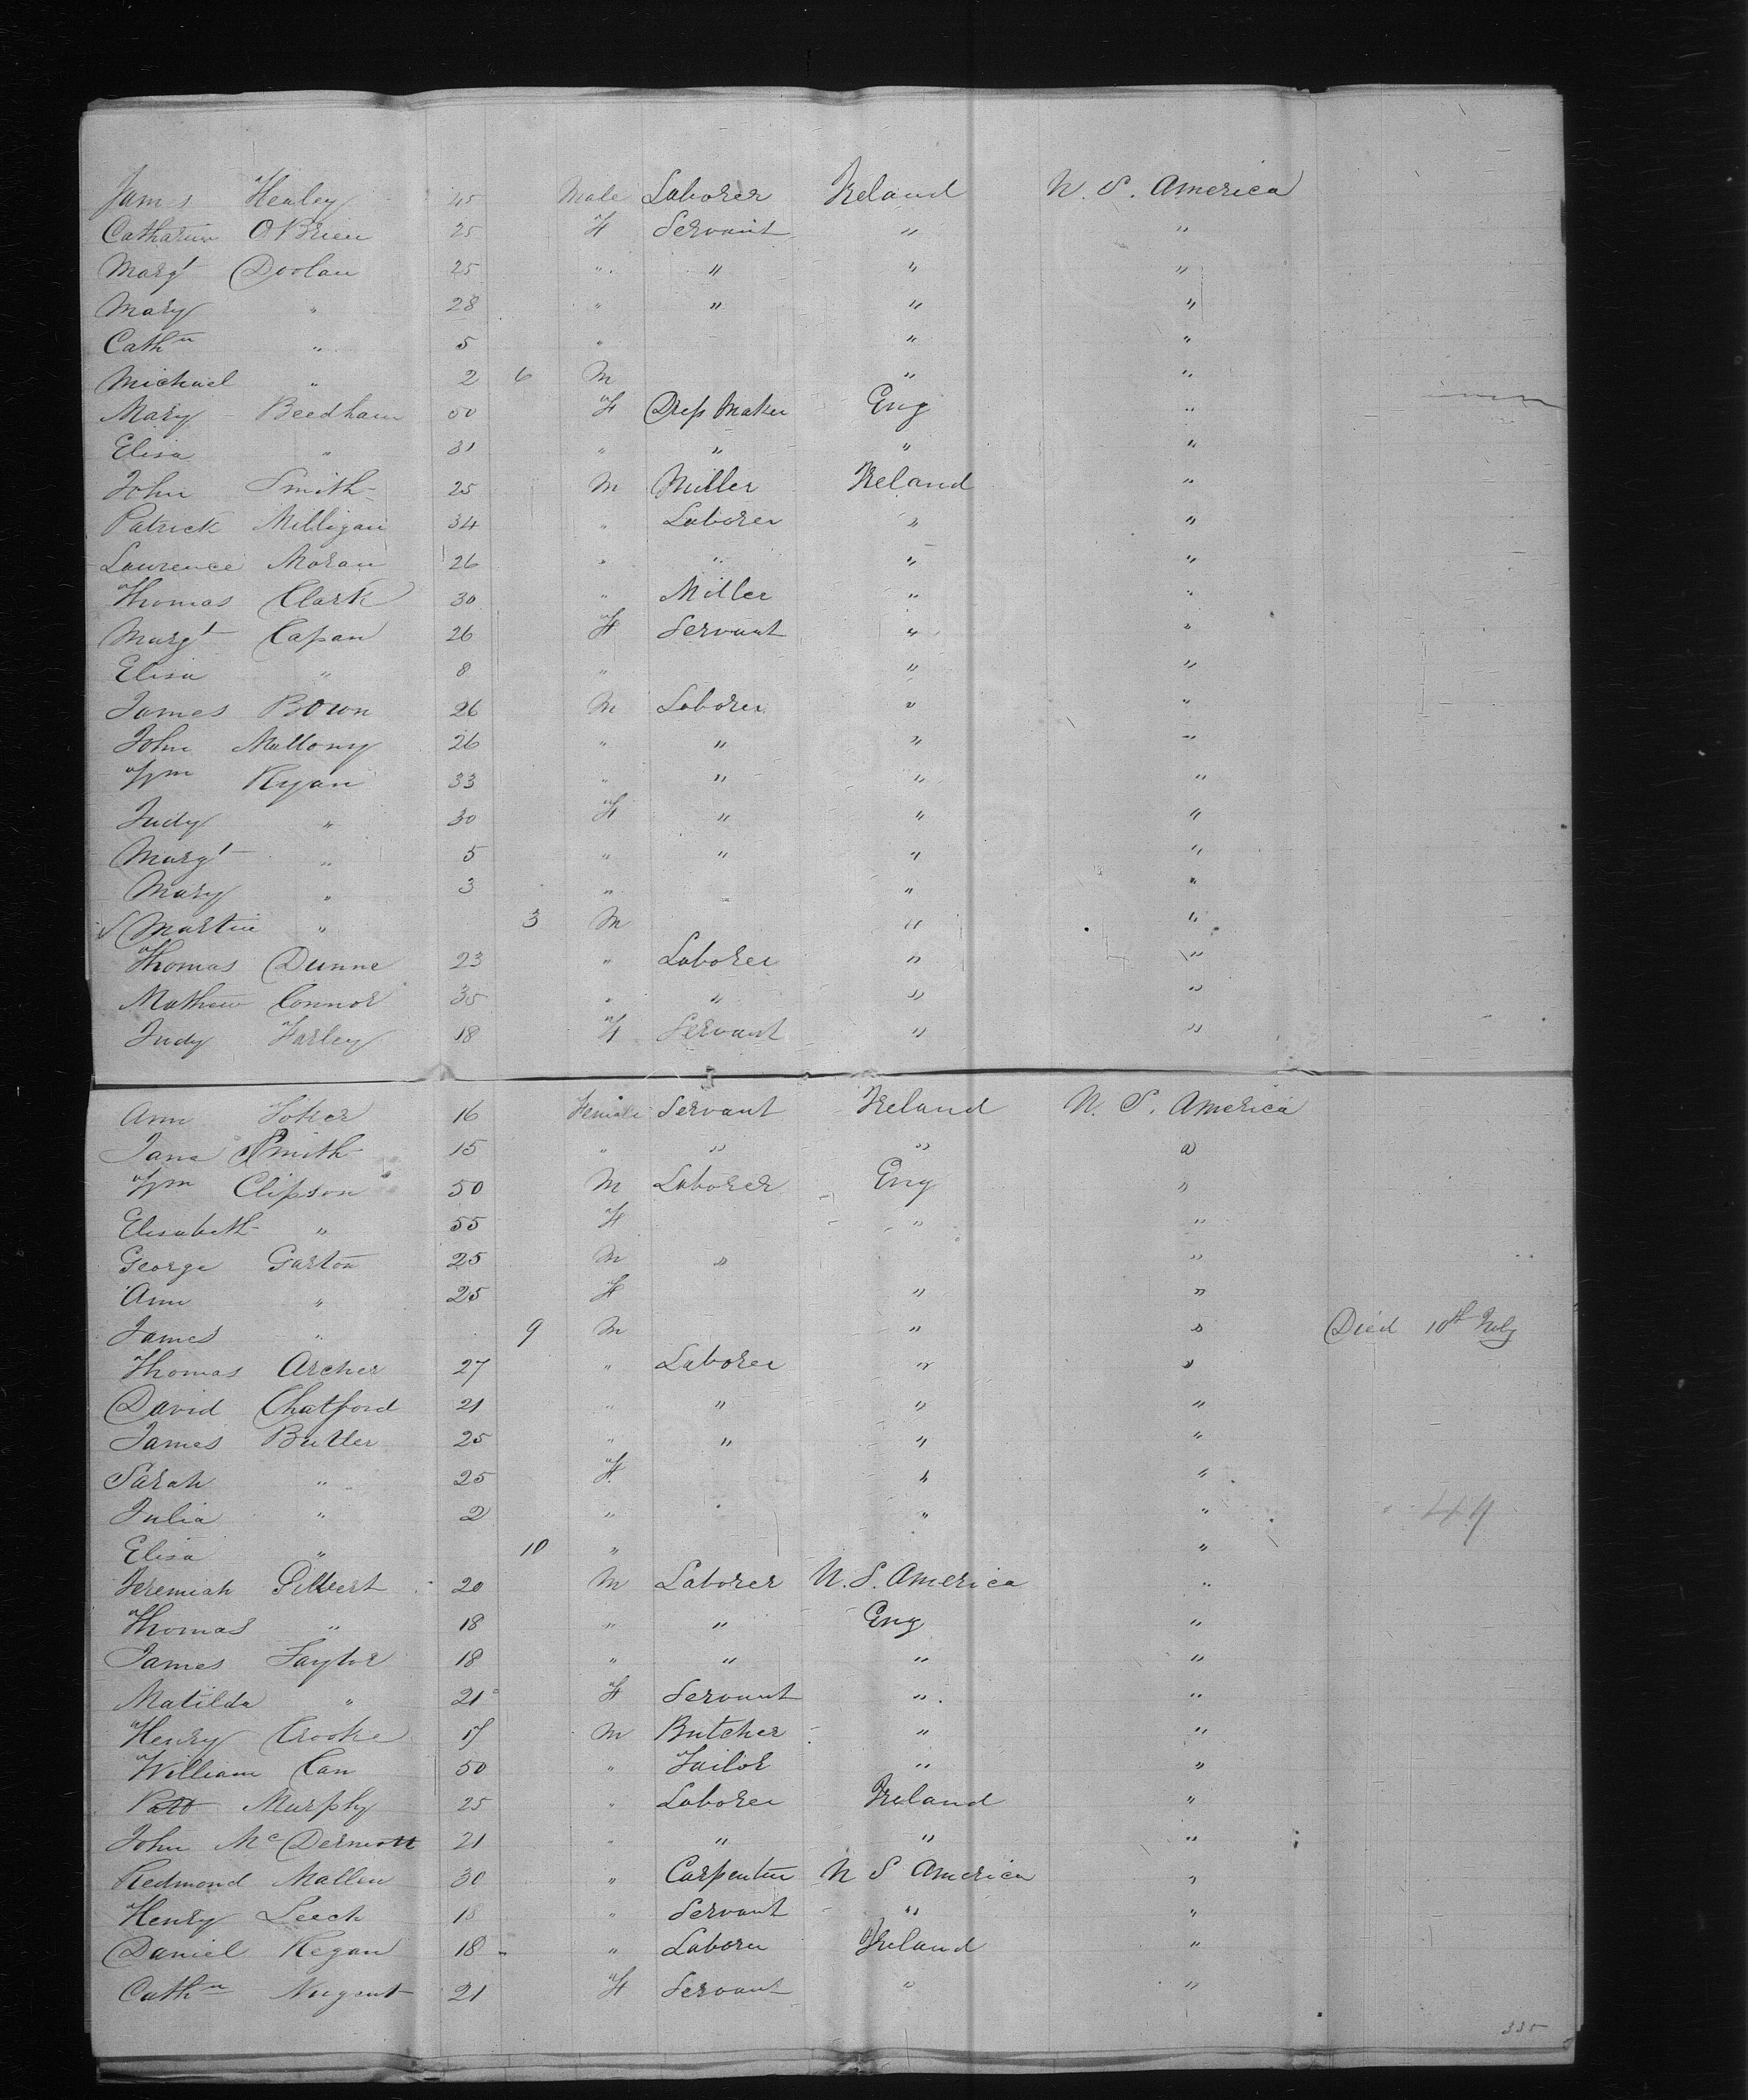 James Healey 45 Male Laborer Ireland U. S. America
Catharine O'Brien 25 F Servant " "
Margt Doolan 25 " " " "
Mary " 28 " " " "
Cathn " 5 " " "
Michael " 2 6 M " "
Mary Beedham 50 F Dress Maker Eng "
Elisa " 31 " " " "
John Smith 25 M Miller Ireland "
Patrick Milligan 34 " Laborer " "
Laurence Moran 26 " " " "
Thomas Clark 30 " Miller " "
Margt Capan 26 F Servant " "
Elisa " 8 " " "
James Bown 26 M Laborer " "
John Mallony 26 " " " "
Wm Ryan 33 " " " "
Judy " 30 F " " "
Margt " 5 " " " "
Mary " 3 " " "
Martin " 3 M " "
Thomas Dunne 23 " Laborer " "
Mathew Connor 35 " " " "
Judy Farley 18 F Servant " "
Ann Toker 16 Female Servant Ireland U. S. America
Jane Smith 15 " " " "
Wm Clipson 50 M Laborer Eng "
Elisabeth " 55 F " "
George Garton 25 M " "
Ann " 25 F " "
James " 9 M " " Died 10th July
Thomas Archer 27 " Laborer " "
David Chatford 21 " " " "
James Butler 25 " " " "
Sarah " 25 F " "
Julia " 2 " " "
Elisa " 10 " "
Jeremiah Gilbert 20 M Laborer U. S. America "
Thomas " 18 " " Eng "
James Taylor 18 " " " "
Matilda " 21 F Servant " "
Henry Crooke 17 M Butcher " "
William Can 50 " Tailor " "
Patt Murphy 25 " Laborer Ireland "
John McDermott 21 " " " "
Redmond Mallen 30 " Carpenter U S America "
Henry Leech 18 " Servant " "
Daniel Regan 18 " Laborer Ireland "
Cathn Nugent 21 F Servant " "
49
335